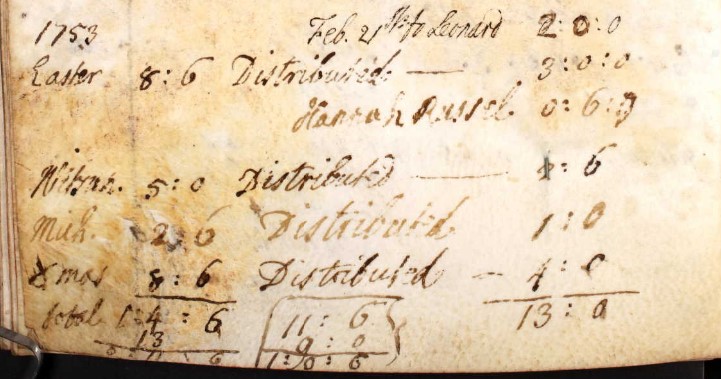 1753 Feb. 21st to Leonard 2: 0: 0
Easter 8: 6 Distributed — 3: 0: 0
Hannah Russel 0: 6: 0
Whitsun. 5: 0 Distributed — 4: 6
Mich. 2 6 Distributed 1: 0
Xmas 8: 6 Distributed — 4: 0
total 1: 4: 6 11: 6 13: 0
13 9: 0
6 1: 0: 6